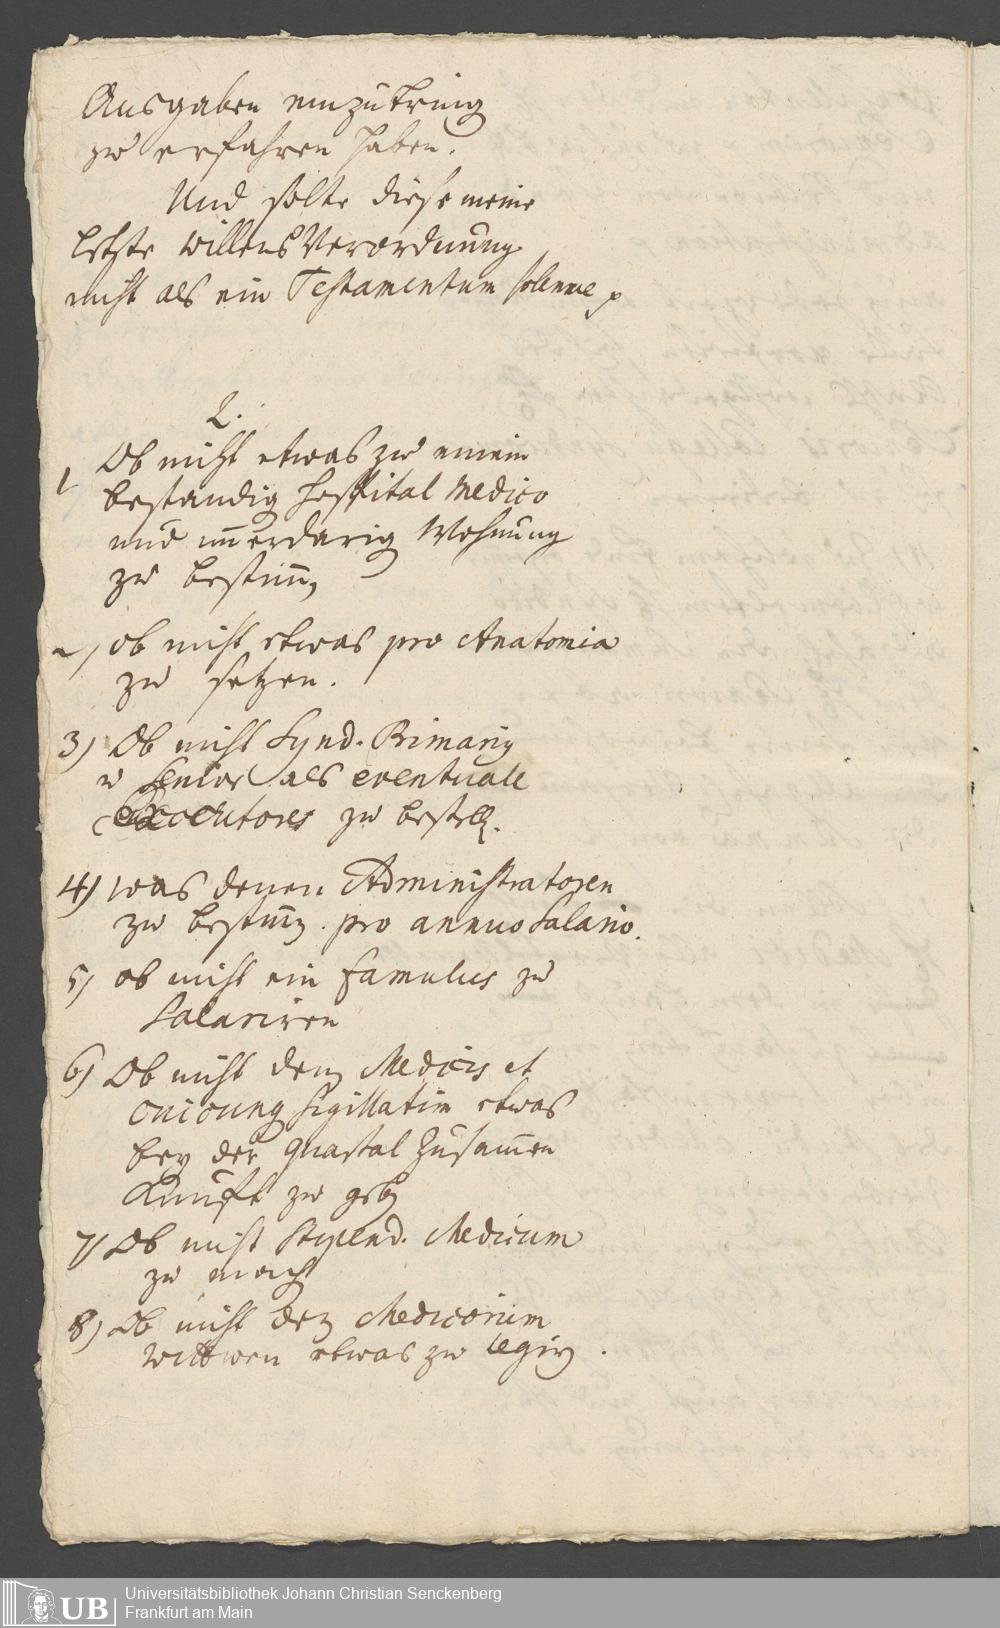 Ausgaben einzubring
zu erfahren haben.
Und solte diese meine
letzte willens Verordnung
nicht als ein Testamentum solenne
2.
1 Ob nicht etwas zu einem
bestandig Hospital Medico
und immerdarig Wohnung
zu bestimm
2) ob nicht etwas pro Anatomia
zu setzen.
3) Ob nicht Synd. Primariq
u Senior als eventuale
Executores zu bestell.
4) was denen Administratoren
zu bestimm. pro annuo Salario.
5) ob nicht ein famulus zu
Salariren
6) Ob nicht den Medicis et
sigillatim etwas
bey der Quartal Zusammen
Kunfft zu geb
7) Ob nicht Stipend. Medicum
zu mach
8) Ob nicht den Medicorum
wittwen etwas zu legir.
UB
Universitätsbibliothek Johann Christian Senckenberg
Frankfurt am Main